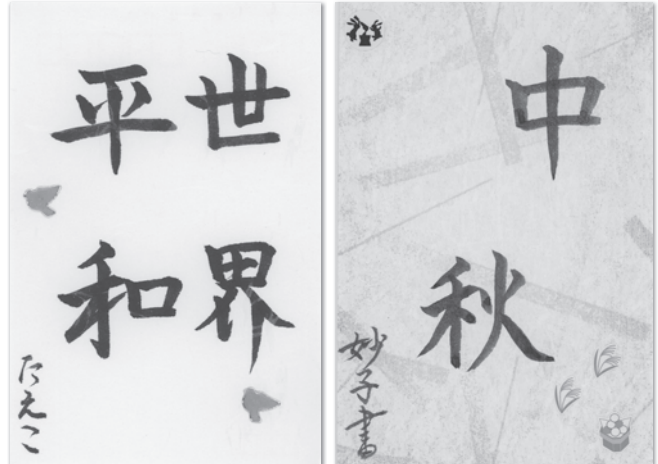 世界
平和
たえこ
中
秋
妙子書